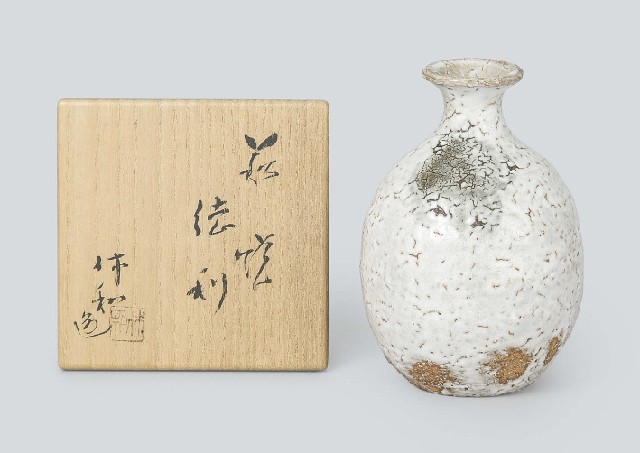 萩焼
徳利
休和造